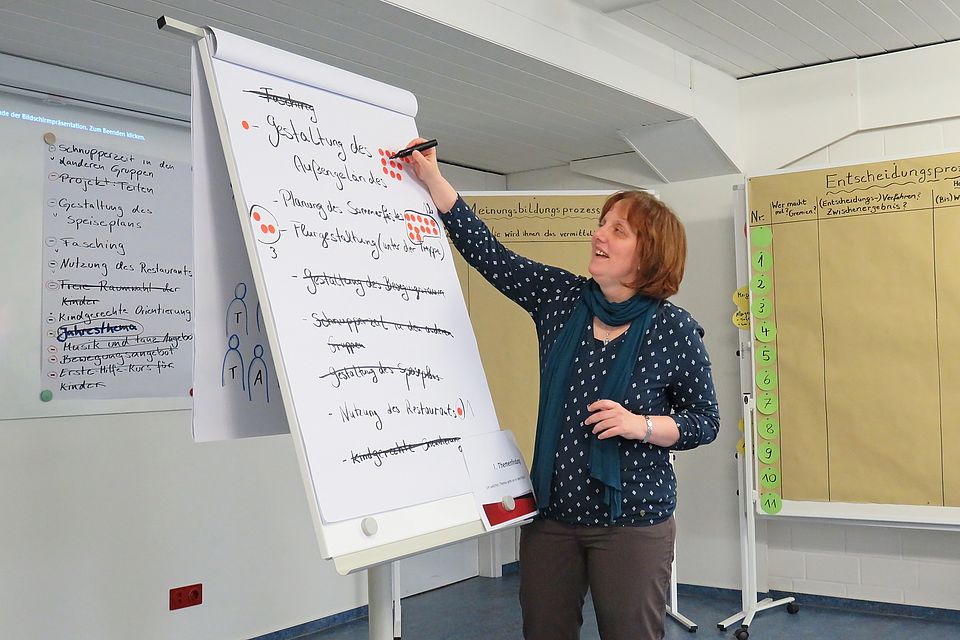 nde der Bildschirmpräsentation. Zum Beenden klicken.
Schnupperzeit in den
anderen Gruppen
Projekt: Teilen
Gestaltung des
Speiseplans
Fasching
Nutzung des Restaurants
Freie Raumwahl der
Kinder
Kindgerechte Orientierung
Jahresthema
Musik und Tanz Angebot
Bewegungsangebot
Erste Hilfe-Kurs für
Kinder
T
T A
Fasching
- Gestaltung des
Außengeländes
- Planung des Sommerfestes
- Flurgestaltung (unter der Treppe)
3
- Gestaltung des
- Schnupperzeit in der anderen
Gruppen
- Gestaltung des Speiseplans
- Nutzung des Restaurants
- Kindgerechte Orientierung
1. Themenfindung
Meinungsbildungsprozess
wird ihnen das vermittelt
Entscheidungsproz
Nr.
Wer macht
mit? (Gremien?)
(Entscheidungs-)Verfahren?
Zwischenergebnis?
(Bis) W
1
2
3
4
5
6
7
8
9
10
11